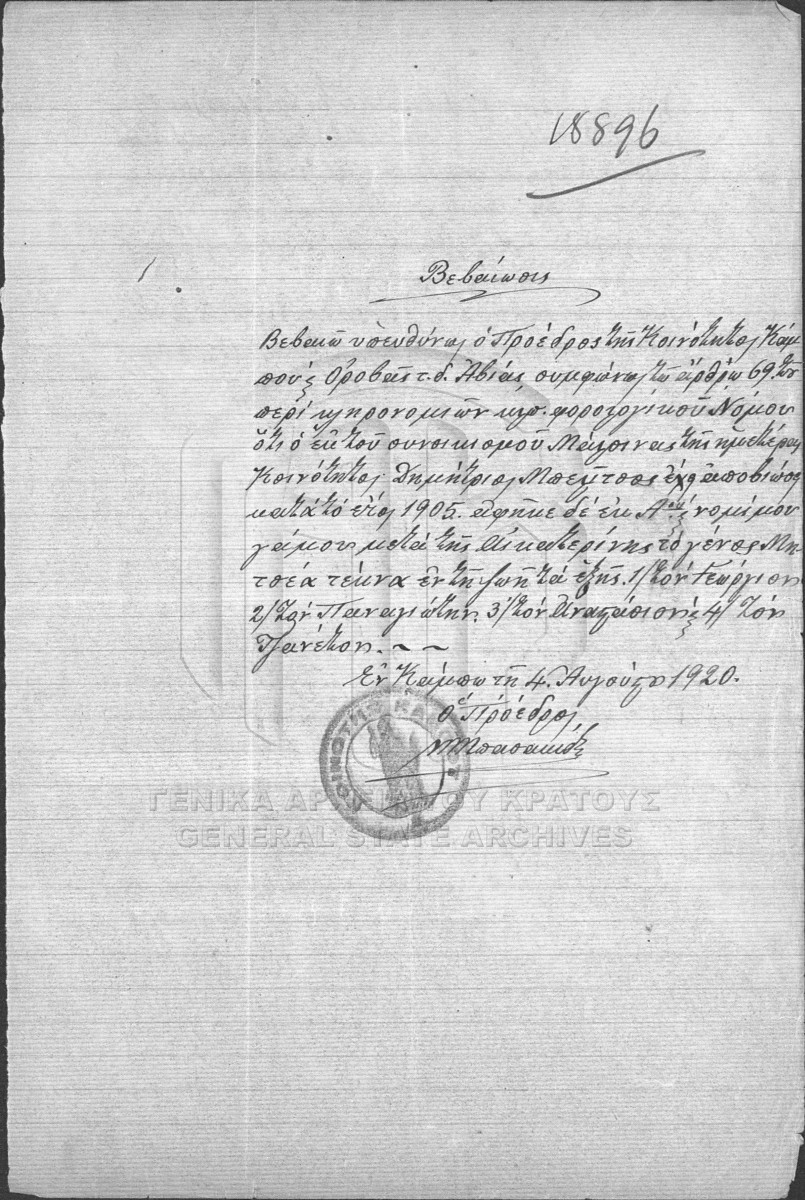 18896
Βεβαίωσις
Βεβαιῶ ὑπευθύνως ὁ Πρόεδρος τῆς Κοινότητος Κάμ
που τ. δ. Ἀβίας, συμφώνως τῷ ἄρθρῳ 69. τοῦ
περὶ κληρονομιῶν κτρ. φορολογικοῦ Νόμου
ὅτι ὁ ἐκ τοῦ συνοικισμοῦ τῆς ἡμετέρας
Κοινότητος Δημήτριος ἀποβιώσας
κατὰ τὸ ἔτος 1905. ἀφῆκε δὲ ἐκ Αου νομίμου
γάμου μετὰ τῆς Αἰκατερίνης τὸ γένος Μη
τσέα τέκνα ἐν τῇ ζωῇ τὰ ἑξῆς. 1/ τὸν Γεώργιον
2/ τὸν Παναγιώτην, 3/ τὸν Ἀναστάσιον 4/ τὸν
Τζανέτον. — ~
Ἐν Κάμπῳ τῇ 4. Αὐγούστου 1920.
Ὁ Πρόεδρος
ΚΟΙΝΟΤΗΣ ΚΑΜΠΟΥ
ΓΕΝΙΚΑ ΑΡΧΕΙΑ ΤΟΥ ΚΡΑΤΟΥΣ
GENERAL STATE ARCHIVES